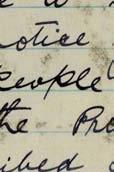 notice
People
the Pro
ibed